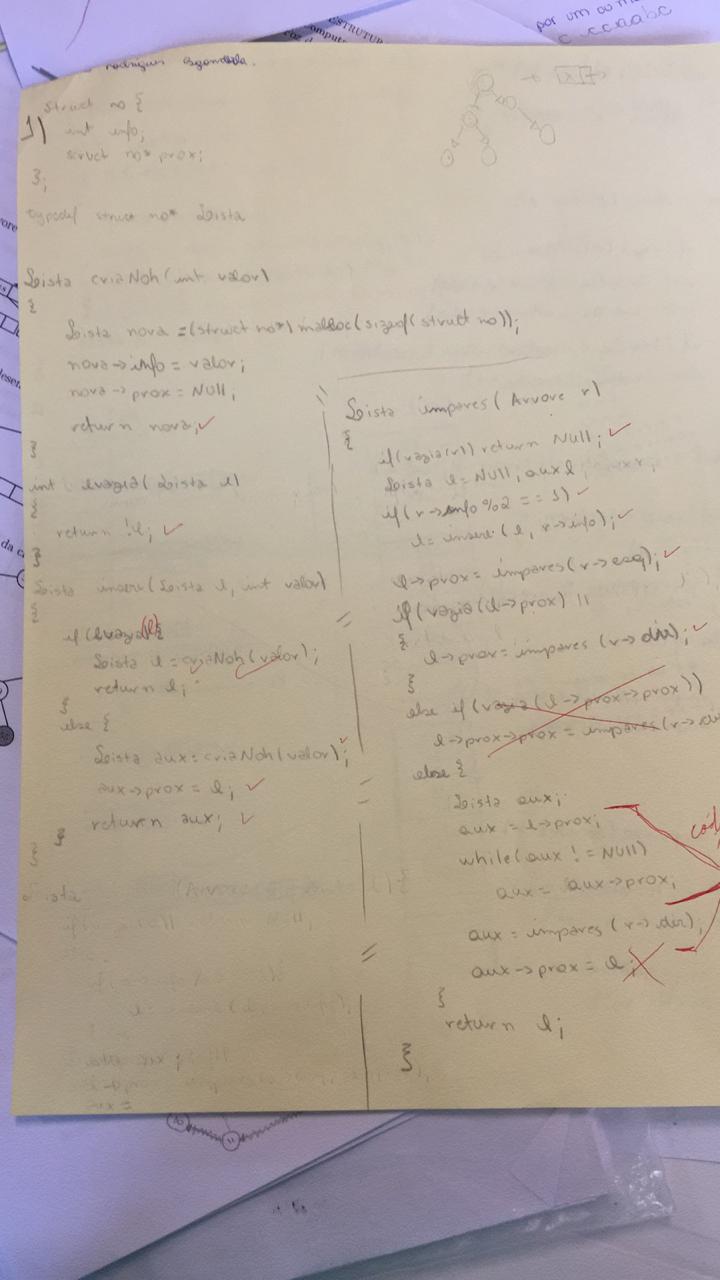 por um ou
ESTRUTUR
comput
rodrigues
1)
struct no {
int info;
struct no* prox;
};
typedef struct no* Lista
Lista criaNoh(int valor)
{
Lista nova =(struct no*) malloc(sizeof(struct no));
nova->info = valor;
nova->prox = NULL;
return nova;
}
int lvazia(Lista l)
{
return !l;
}
Lista insere(Lista l, int valor)
{
if(lvazia(l){
Lista l = criaNoh(valor);
return l;
}
else {
Lista aux = criaNoh(valor);
aux->prox = l;
return aux;
}
}
Lista impares(Arvore r)
{
if(vazia(r)) return NULL;
Lista l = NULL, aux l
if(r->info %2 == 1)
l = insere(l, r->info);
l->prox = impares(r->esq);
if(vazia(l->prox) ||
{
l->prox = impares(r->dir);
}
else if(vazia(l->prox->prox))
l->prox->prox = impares(r->di
else {
Lista aux;
aux = l->prox;
while(aux != NULL)
aux = aux->prox;
aux = impares(r->dir);
aux->prox = l;
}
return l;
}
11